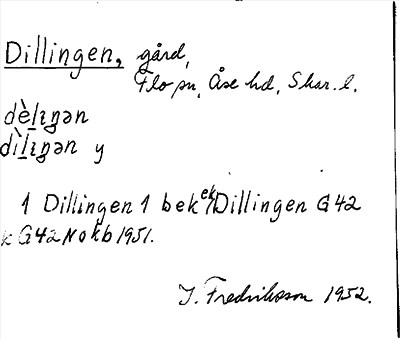 Dillingen, gård,
Flo sn, Åse hd, Skar. l.
dèlɩŋən
dìlɩŋən y
1 Dillingen 1 bek ek/Dillingen G42
k G42NoKb1951.
I. Fredriksson 1952.